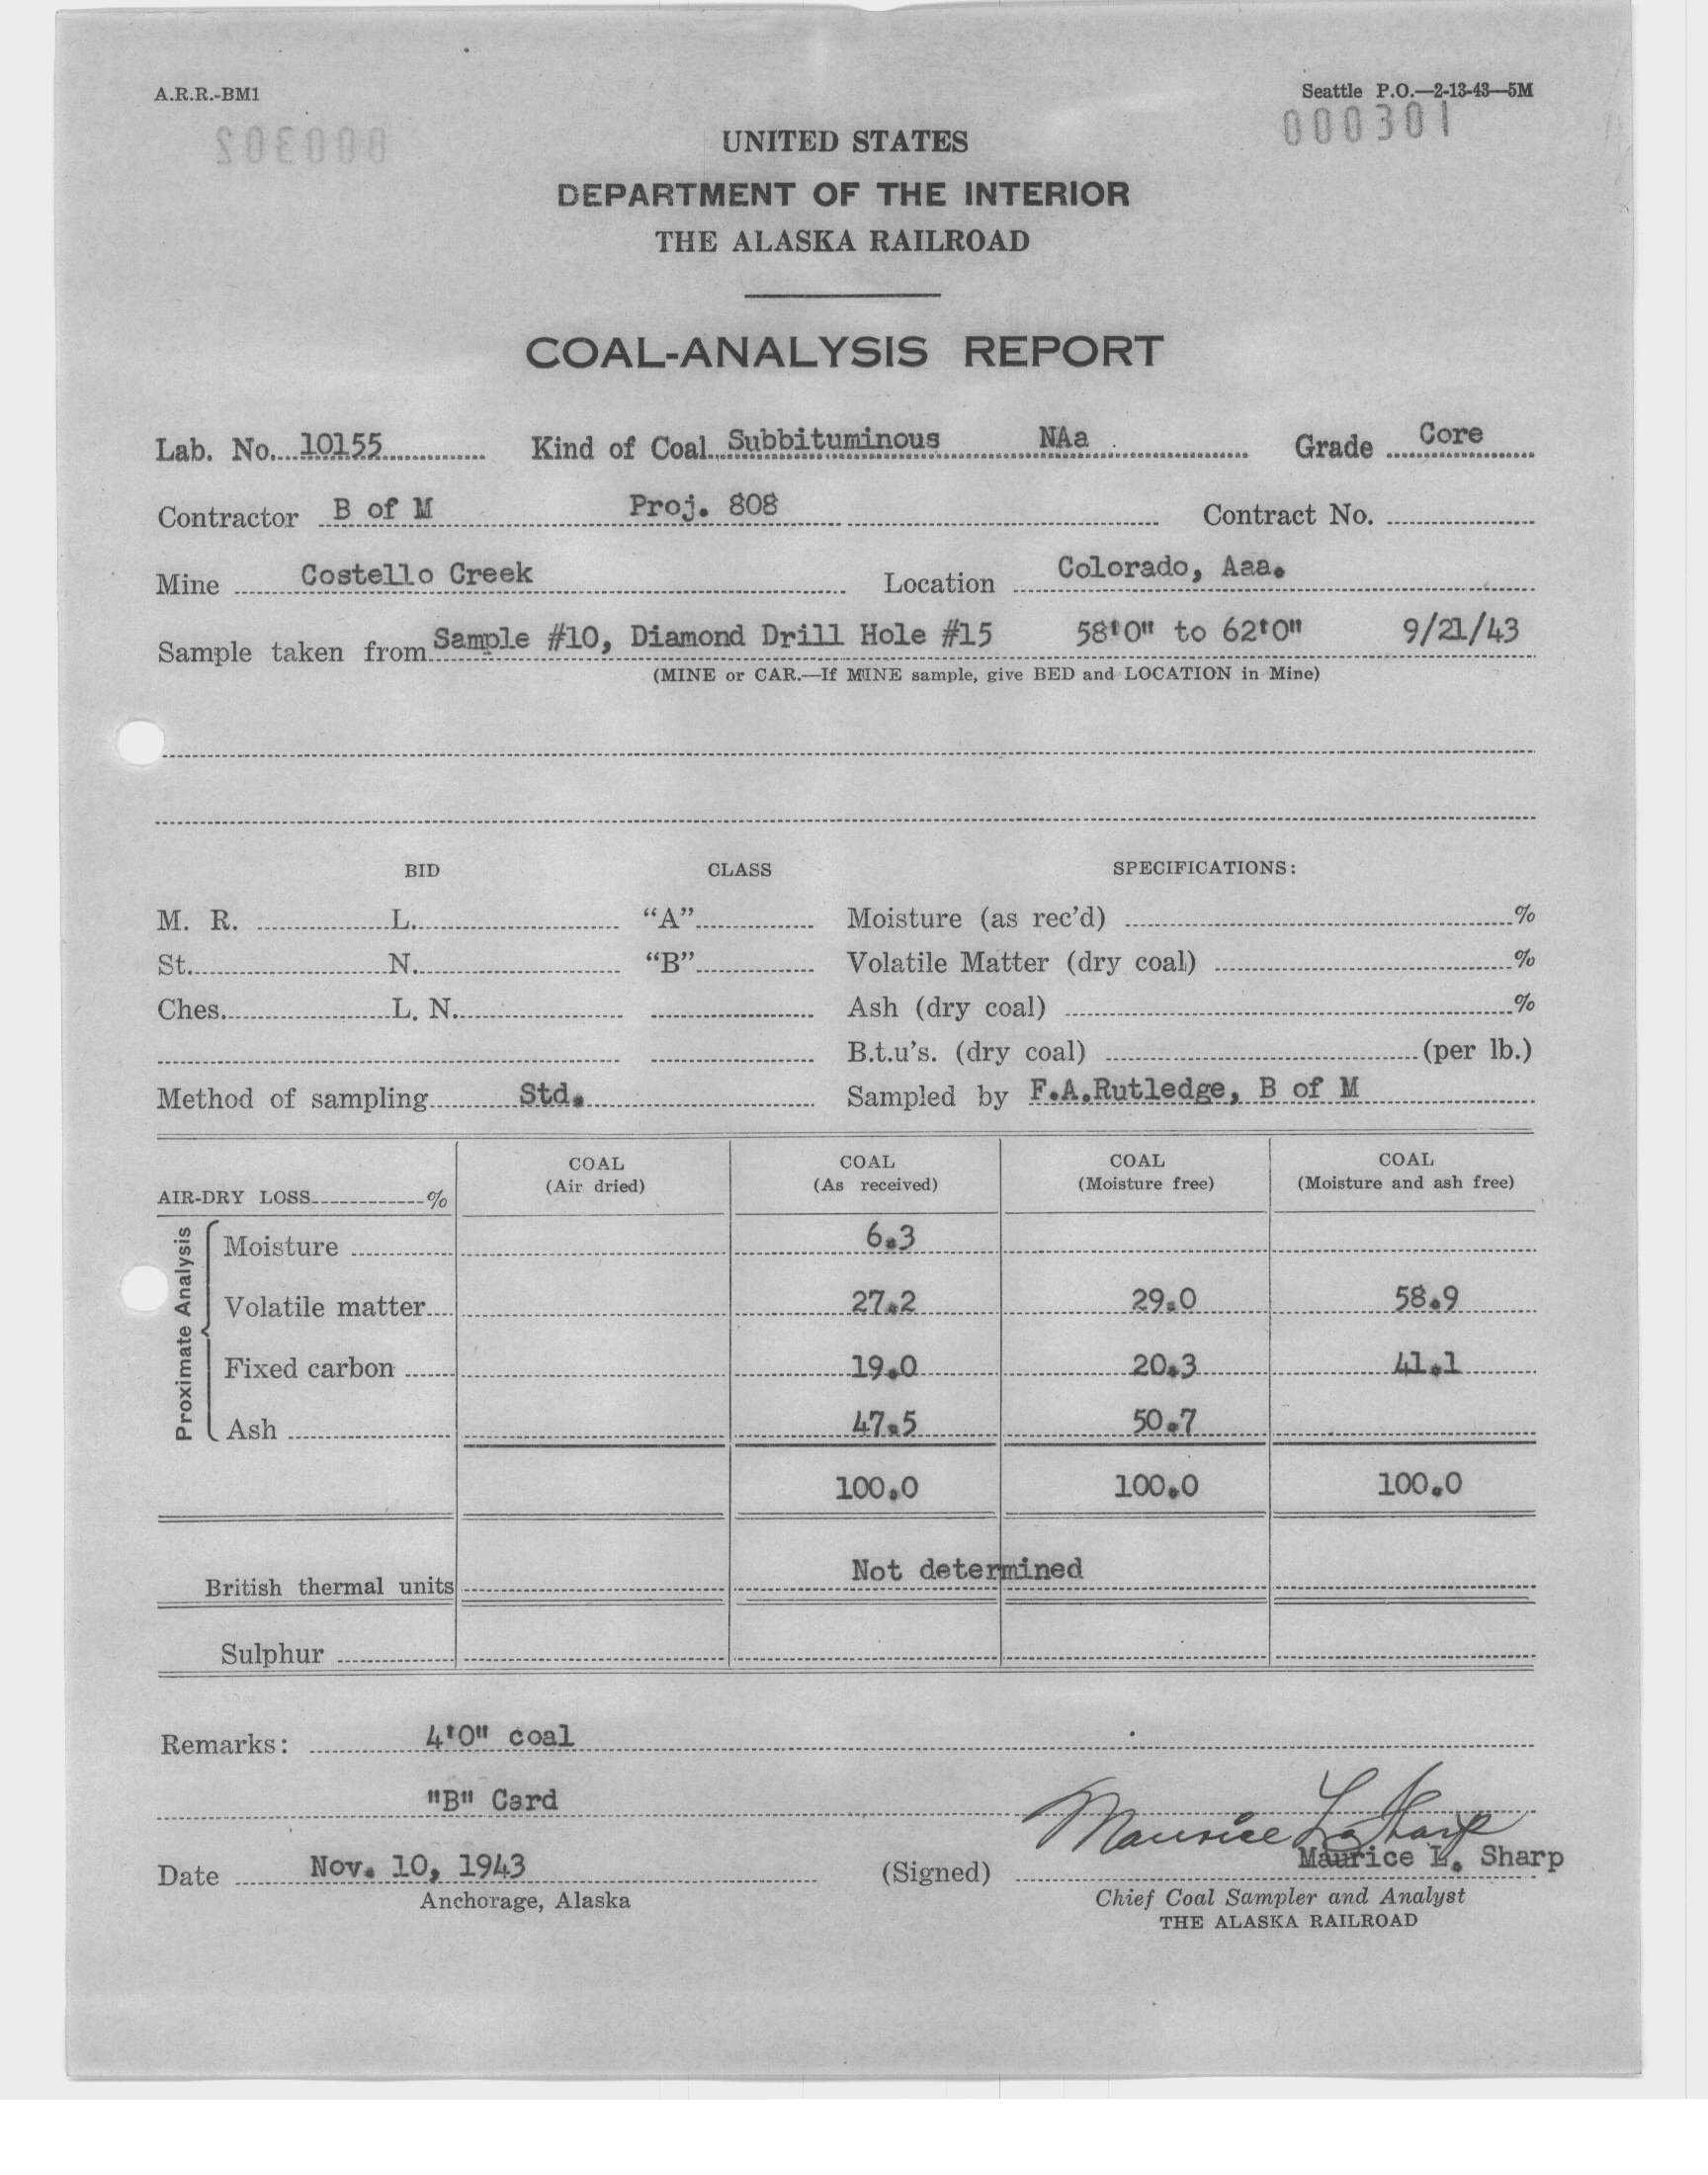 A.R.R.-BM1
Seattle P.O.—2-13-43—5M
000302
000301
UNITED STATES
DEPARTMENT OF THE INTERIOR
THE ALASKA RAILROAD
COAL-ANALYSIS REPORT
Lab. No. 10155 Kind of Coal Subbituminous NAa Grade Core
Contractor B of M Proj. 808 Contract No.
Mine Costello Creek Location Colorado, Aaa.
Sample taken from Sample #10, Diamond Drill Hole #15 58'0" to 62'0" 9/21/43
(MINE or CAR.—If MINE sample, give BED and LOCATION in Mine)
BID CLASS SPECIFICATIONS:
M. R. L. "A" Moisture (as rec'd) %
St. N. "B" Volatile Matter (dry coal) %
Ches. L. N. Ash (dry coal) %
B.t.u's. (dry coal) (per lb.)
Method of sampling Std. Sampled by F.A.Rutledge, B of M
AIR-DRY LOSS % COAL (Air dried) COAL (As received) COAL (Moisture free) COAL (Moisture and ash free)
Proximate Analysis
Moisture 6.3
Volatile matter 27.2 29.0 58.9
Fixed carbon 19.0 20.3 41.1
Ash 47.5 50.7
100.0 100.0 100.0
British thermal units Not determined
Sulphur
Remarks: 4'0" coal
"B" Card
Maurice L. Sharp
Date Nov. 10, 1943 (Signed) Maurice L. Sharp
Anchorage, Alaska Chief Coal Sampler and Analyst
THE ALASKA RAILROAD